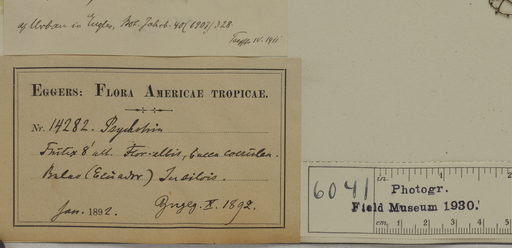 cf Urban in Engler, Bot. Jahrb. 40 (1907) 328
IV. 1911
EGGERS: FLORA AMERICAE TROPICAE.
Nr. 14282. Psychotria
Frutex 8' alt. Flor. albis, bacca coccinea.
Balao (Ecuador) In silvis.
Jan. 1892.
6041
in. 1 2
Photogr.
Field Museum 1930.
cm. 1 2 3 4 5